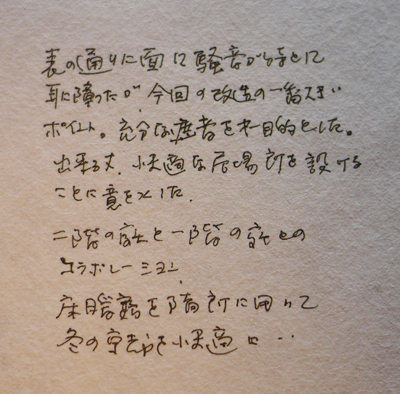 表の通りに面し騒音が時として
耳に障ったが今回の改造の一番大きい
ポイント。充分な遮音を本目的とした。
出来る丈、快適な居場所を設ける
ことに意を
二階の 一階の との
コラボレーション
床暖 を随所に用いて
冬の京都を快適に・・